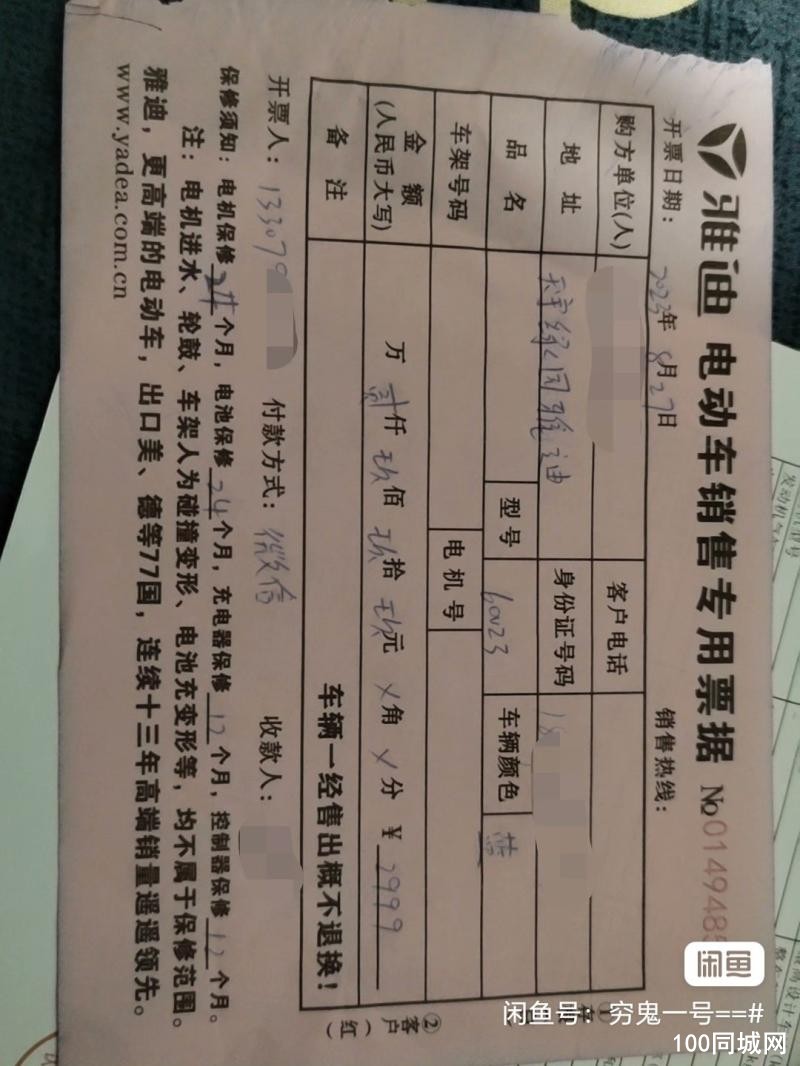 雅迪 电动车销售专用票据 No 0149485
开票日期: 2023年8月27日 销售热线:
购方单位(人) 客户电话
地址 天宇绿园雅迪 身份证号码 18
品名 型号 60V23 车辆颜色 蓝
车架号码 电机号
金额 (人民币大写) 万 贰仟 玖佰 玖拾 玖元 X角 X分 ¥ 2999
备注 车辆一经售出概不退换!
开票人: 133079 付款方式: 微信 收款人:
保修须知: 电机保修 24 个月, 电池保修 24 个月, 充电器保修 12 个月, 控制器保修 12 个月。
注: 电机进水、轮鼓、车架人为碰撞变形、电池充变形等, 均不属于保修范围。
雅迪, 更高端的电动车, 出口美、德等77国, 连续十三年高端销量遥遥领先。
www.yadea.com.cn
②客户(红)
发动机号
闲鱼
闲鱼号: 穷鬼一号==#
100同城网